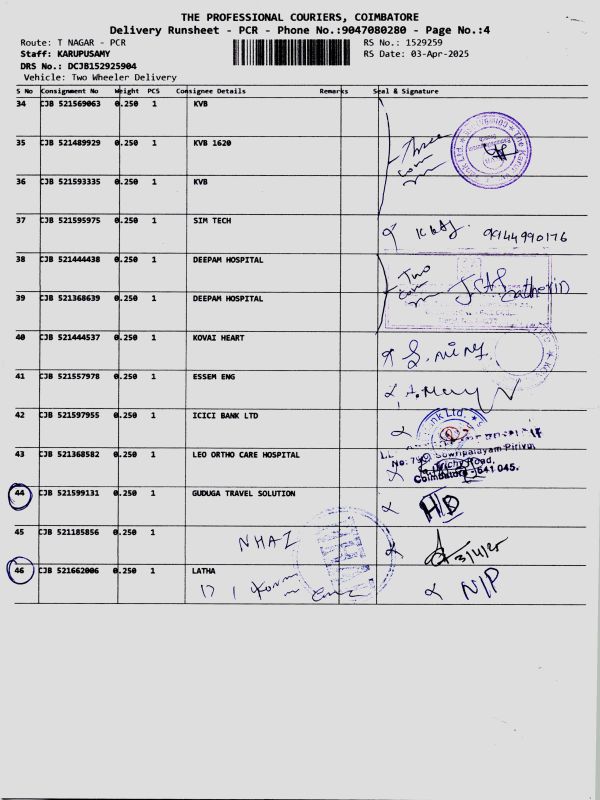 THE PROFESSIONAL COURIERS, COIMBATORE
Delivery Runsheet - PCR - Phone No.:9047080280 - Page No.:4
Route: T NAGAR - PCR RS No.: 1529259
Staff: KARUPUSAMY RS Date: 03-Apr-2025
DRS No.: DCJB152925904
Vehicle: Two Wheeler Delivery
S No Consignment No Weight PCS Consignee Details Remarks Seal & Signature
34 CJB 521569063 0.250 1 KVB
35 CJB 521489929 0.250 1 KVB 1620 Three
36 CJB 521593335 0.250 1 KVB
37 CJB 521595975 0.250 1 SIM TECH 9144990176
38 CJB 521444438 0.250 1 DEEPAM HOSPITAL Two
39 CJB 521368639 0.250 1 DEEPAM HOSPITAL
40 CJB 521444537 0.250 1 KOVAI HEART
41 CJB 521557978 0.250 1 ESSEM ENG
42 CJB 521597955 0.250 1 ICICI BANK LTD
43 CJB 521368582 0.250 1 LEO ORTHO CARE HOSPITAL
Sowripalayam Pirivu
Trichy Road,
Coimbatore - 641 045.
44 CJB 521599131 0.250 1 GUDUGA TRAVEL SOLUTION HB
45 CJB 521185856 0.250 1 NHAI 3/4/25
46 CJB 521662006 0.250 1 LATHA N/P